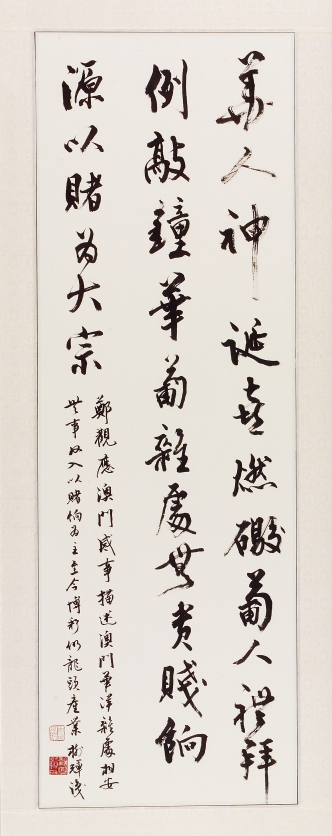 華人神誕喜燃礮葡人禮拜
例敲鐘華葡雜處無貴賤餉
源以賭為大宗
鄭觀應澳門感事描述澳門華洋雜處相安
無事收入以賭餉為主至今博彩仍龍頭產業